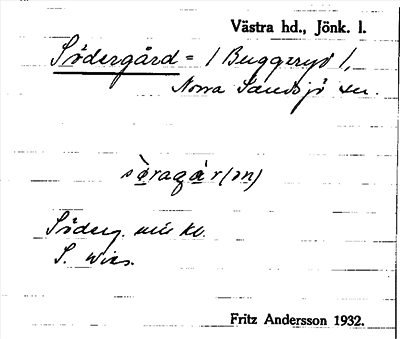 Västra hd., Jönk. l.
Södergård = / Buggeryd /,
Norra Sandsjö sn.
sö̀ragár(ən)
Söderg.
S.
Fritz Andersson 1932.